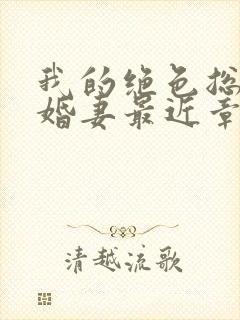 我的绝色总
婚妻最近章
清越流歌